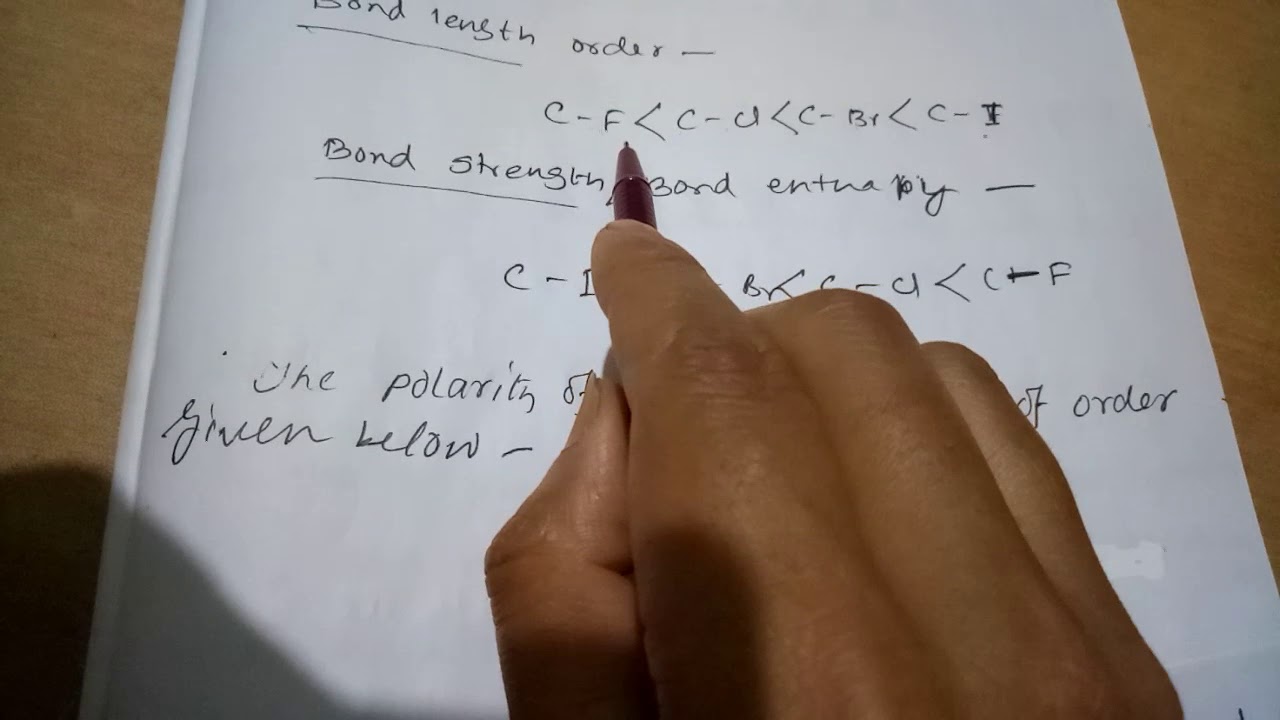 Bond length order —
C - F < C - Cl < C - Br < C - I
Bond strength, Bond enthalpy —
C - I Br < C - Cl < C - F
The polarity of of order
given below -